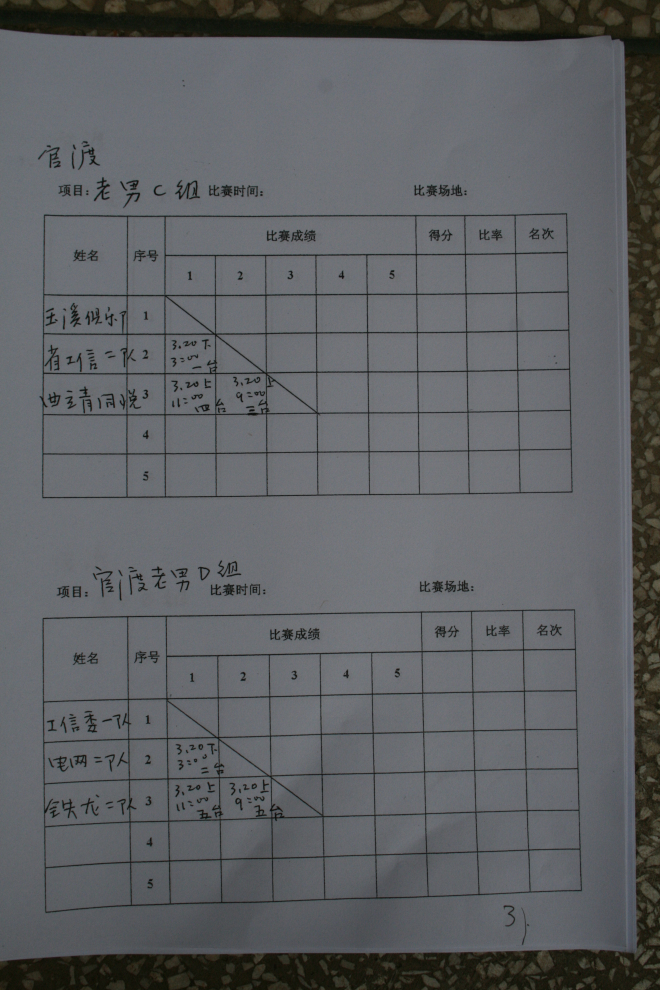 官渡
项目: 老男C组 比赛时间: 比赛场地:
姓名 序号 比赛成绩 得分 比率 名次
1 2 3 4 5
玉溪俱乐了 1
省工信二队 2 3.20下 3:00 一台
曲靖同悦 3 3.20上 11:00 四台 3.20上 9:00 三台
4
5
项目: 官渡老男D组 比赛时间: 比赛场地:
姓名 序号 比赛成绩 得分 比率 名次
1 2 3 4 5
工信委一队 1
电网二队 2 3.20下 3:00 二台
铁龙二队 3 3.20上 11:00 五台 3.20上 9:00 五台
4
5
3)